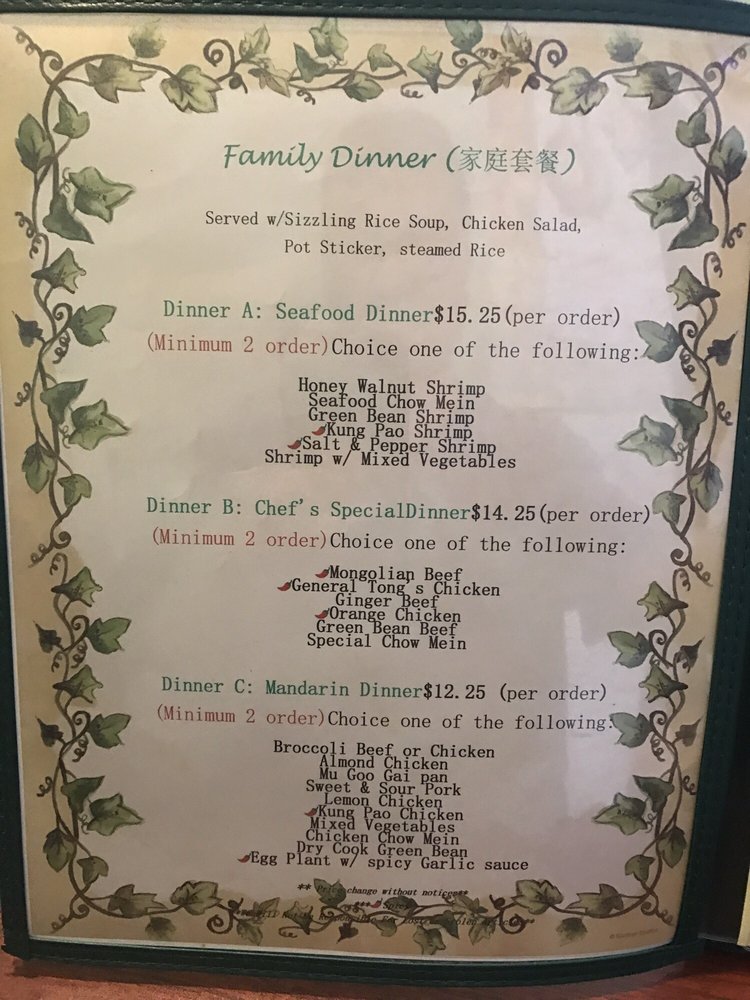 Family Dinner (家庭套餐)
Served w/Sizzling Rice Soup, Chicken Salad,
Pot Sticker, steamed Rice
Dinner A: Seafood Dinner$15.25(per order)
(Minimum 2 order)Choice one of the following:
Honey Walnut Shrimp
Seafood Chow Mein
Green Bean Shrimp
Kung Pao Shrimp
Salt & Pepper Shrimp
Shrimp w/ Mixed Vegetables
Dinner B: Chef's SpecialDinner$14.25(per order)
(Minimum 2 order)Choice one of the following:
Mongolian Beef
General Tong s Chicken
Ginger Beef
Orange Chicken
Green Bean Beef
Special Chow Mein
Dinner C: Mandarin Dinner$12.25 (per order)
(Minimum 2 order)Choice one of the following:
Broccoli Beef or Chicken
Almond Chicken
Mu Goo Gai pan
Sweet & Sour Pork
Lemon Chicken
Kung Pao Chicken
Mixed Vegetables
Chicken Chow Mein
Dry Cook Green Bean
Egg Plant w/ spicy Garlic sauce
** Price change without notices**
Not Be Responsible For Lost